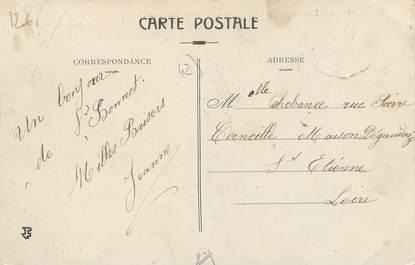 126
CARTE POSTALE
CORRESPONDANCE
42
ADRESSE
Un bonjour
de St Bonnet.
Milles Baisers
Jeanne
Melle rue Pierre
Corneille Maison
St Etienne
Loire